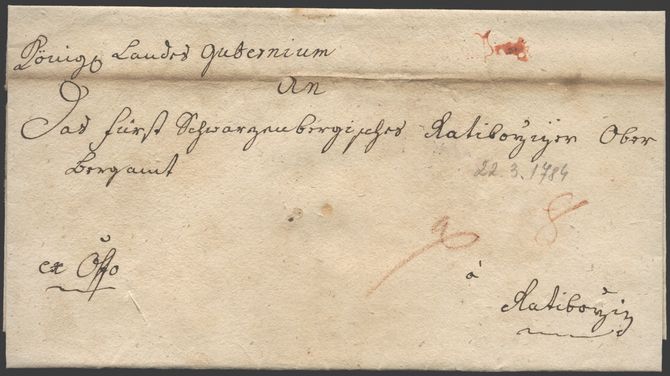 Königl Landes Gubernium
An
Das fürst Schwarzenbergisches Ratiboržizer Ober
bergamt
22.3.1784
8
ex Offo
à
Ratiboržiz